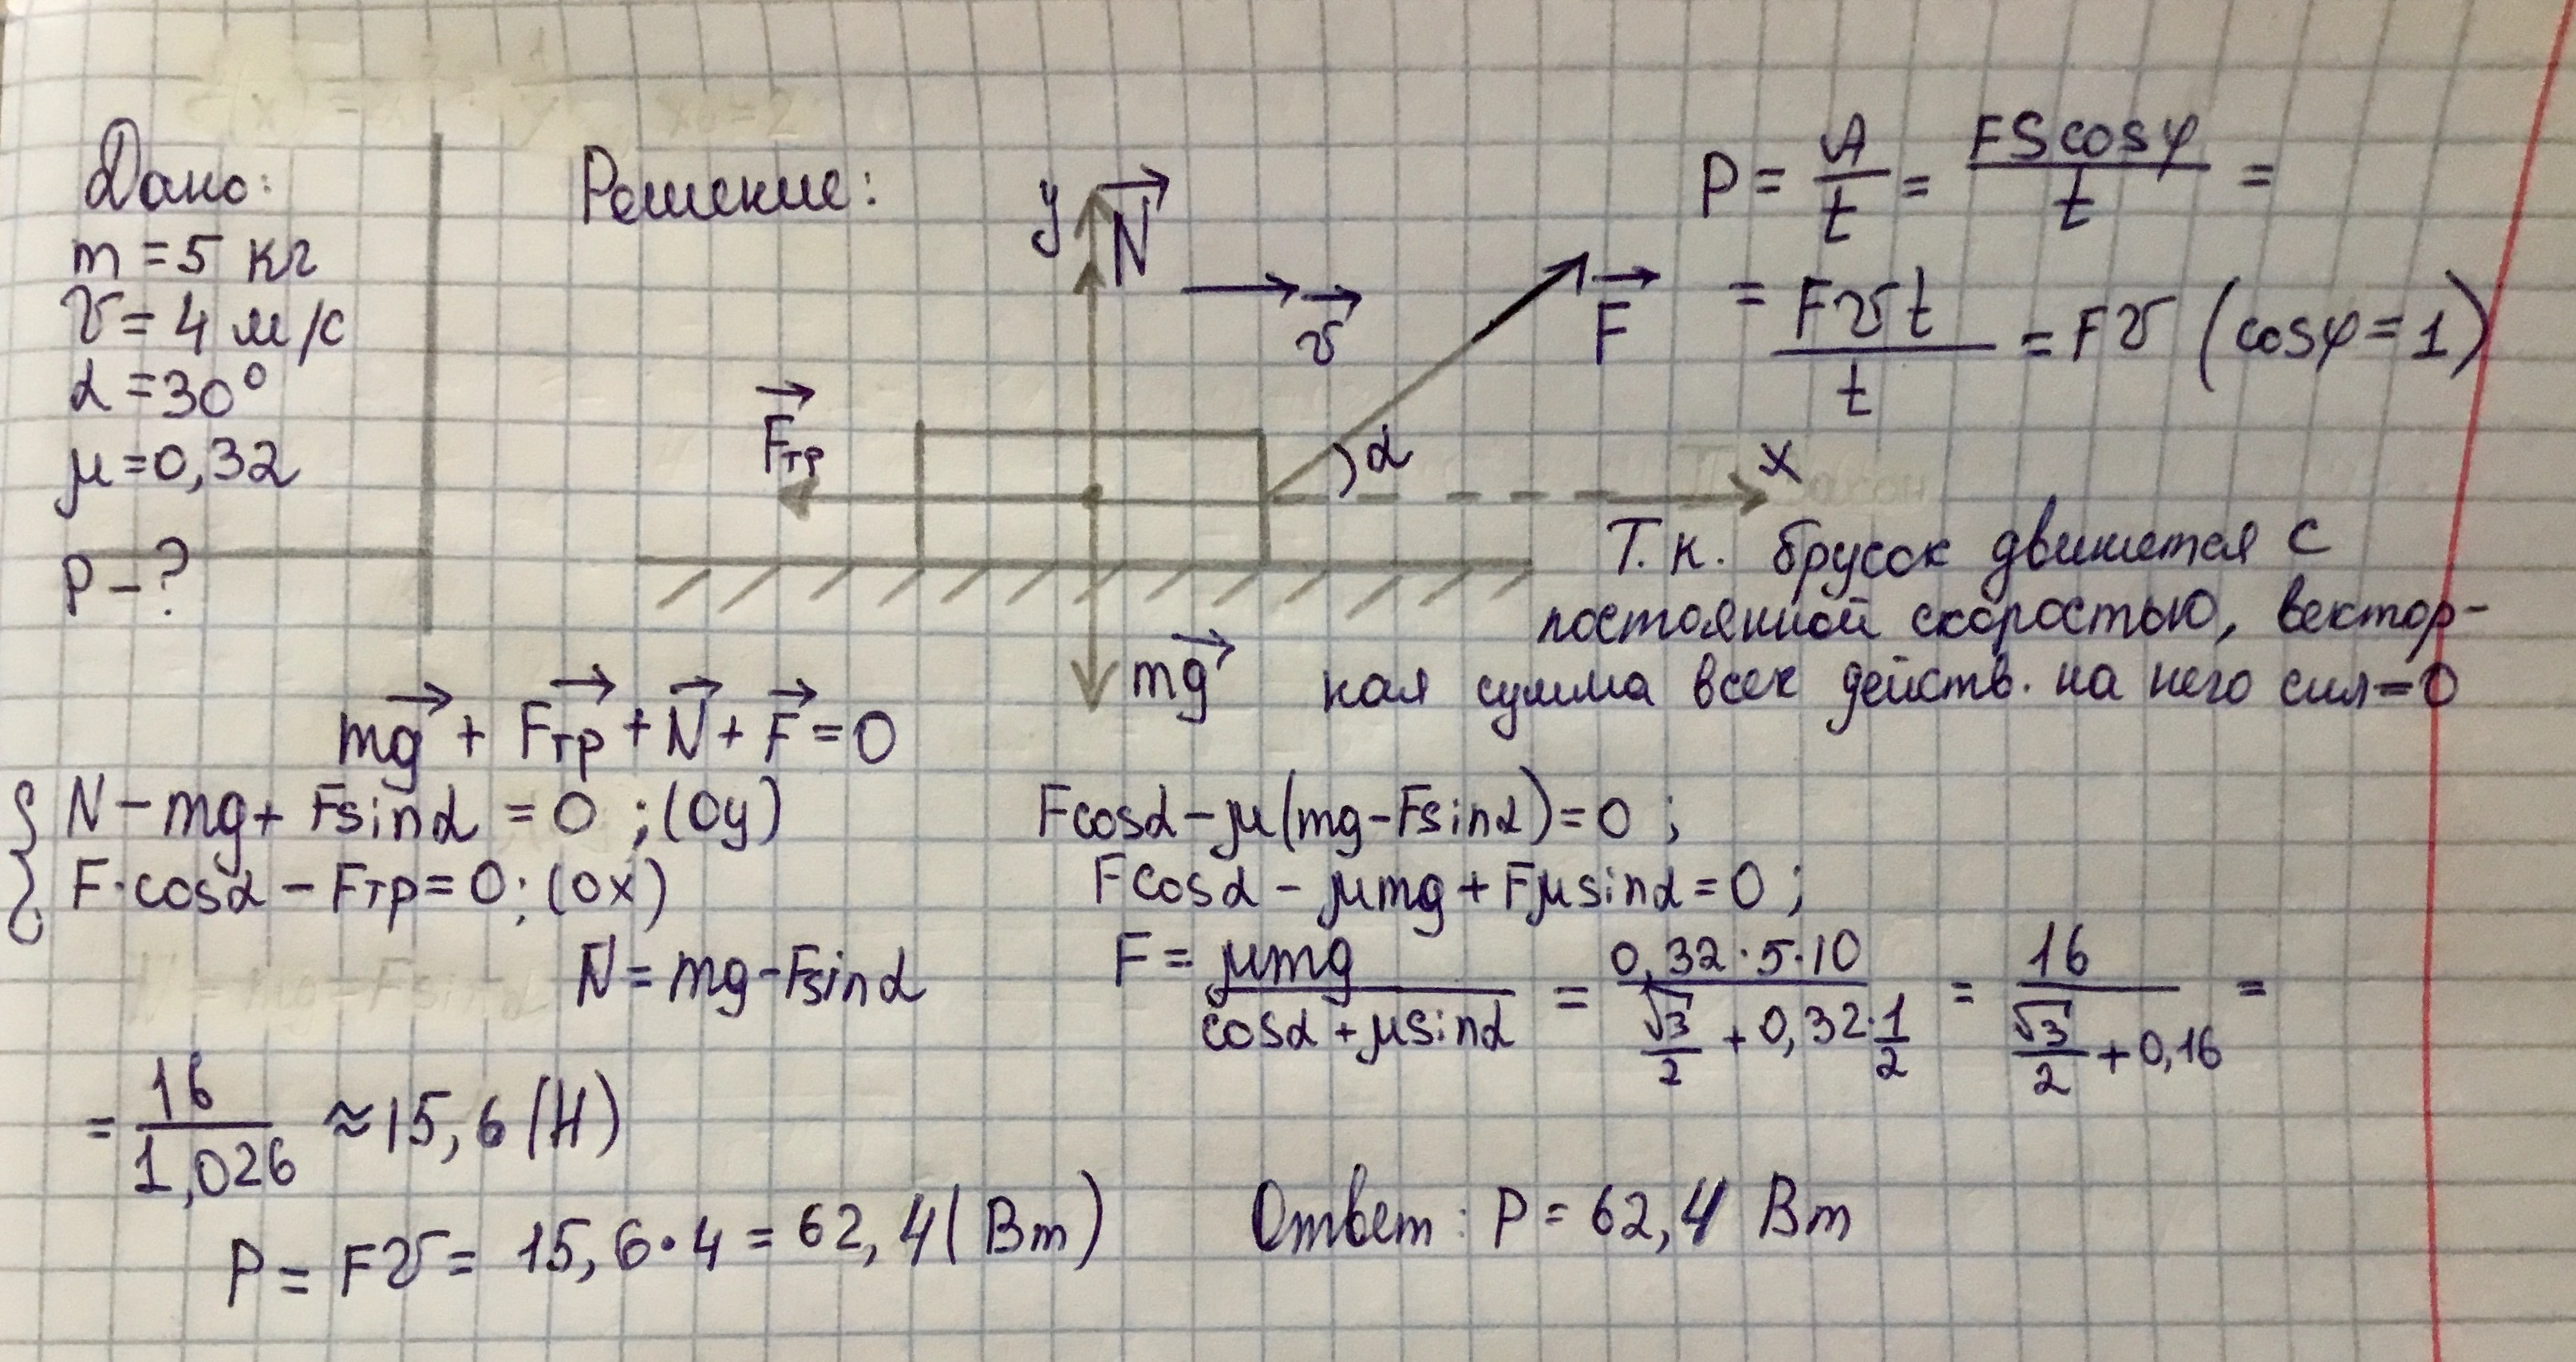 Дано:
m = 5 кг
v = 4 м/с
α = 30°
μ = 0,32
P – ?
Решение:
y
N
v
F
Fтр
α
x
mg
P = A/t = FS cosφ/t =
= Fvt/t = Fv (cosφ = 1)
Т.к. брусок движется с
постоянной скоростью, вектор-
ная сумма всех действ. на него сил = 0
mg + Fтр + N + F = 0
{ N – mg + Fsinα = 0 ; (Oy)
F·cosα – Fтр = 0; (Ox)
N = mg – Fsinα
Fcosα – μ(mg – Fsinα) = 0 ;
Fcosα – μmg + Fμsinα = 0 ;
F = μmg/(cosα + μsinα) = 0,32·5·10/(√3/2 + 0,32·1/2) = 16/(√3/2 + 0,16) =
= 16/1,026 ≈ 15,6 (Н)
P = Fv = 15,6·4 = 62,4 (Вт)
Ответ: P = 62,4 Вт